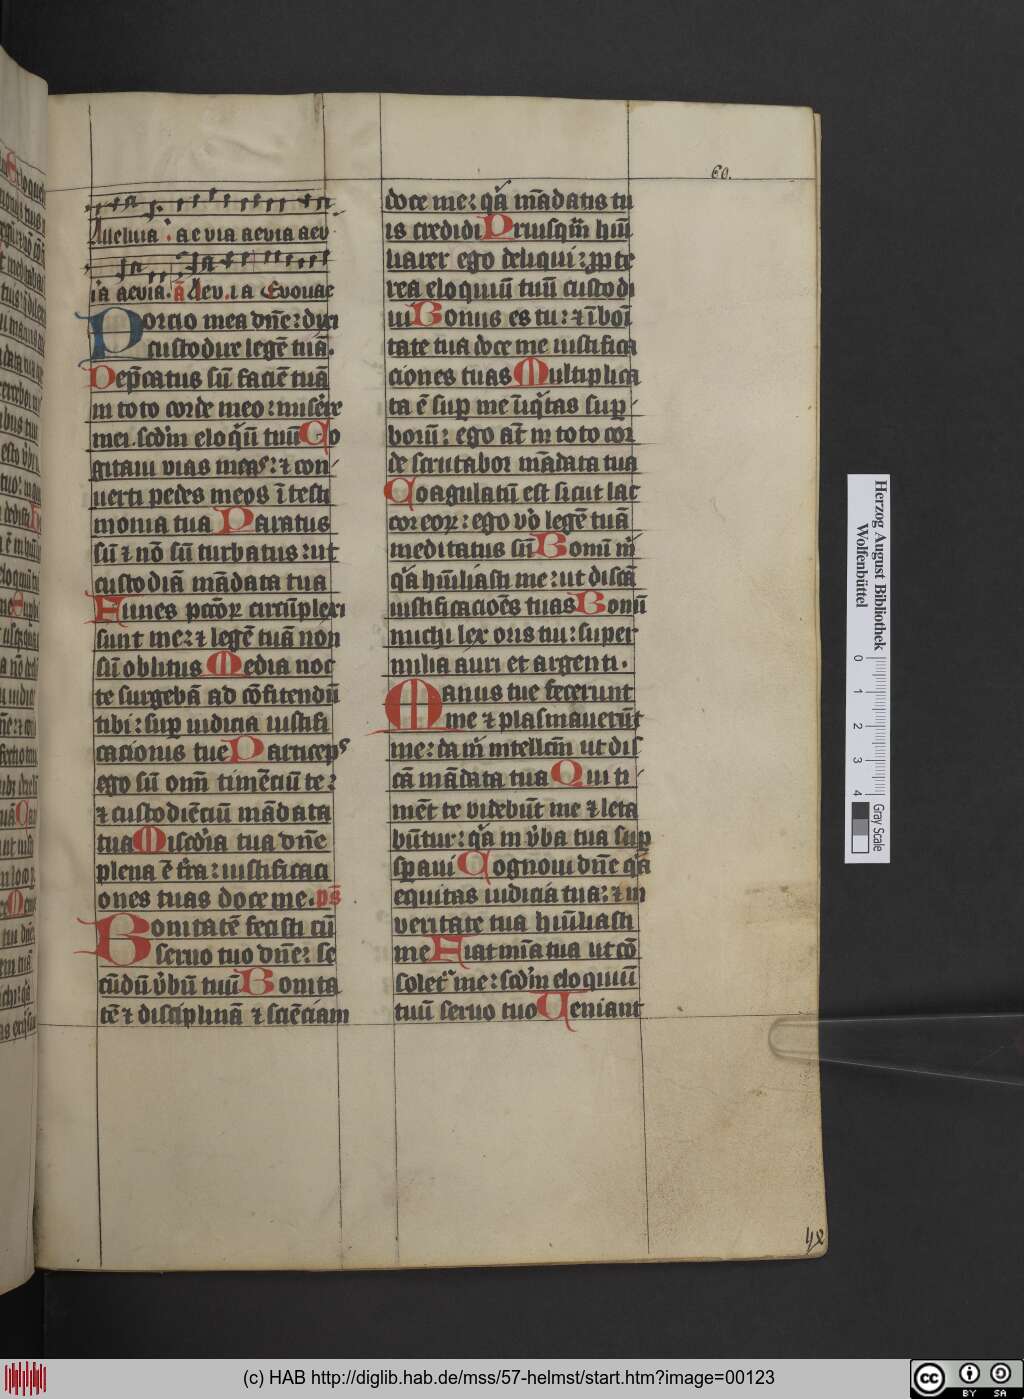 60.
Alleluia : aevia aevia aev
ia aevia. a̅ Aev.ia Evouae
Porcio mea dn̅e: dixi
custodire legē tuā.
Dep̅catus sū faciē tuā
in toto corde meo: misere
mei. scd̅m eloq̅ū tuū Co
gitaui vias meas: ⁊ con
uerti pedes meos ī testi
monia tua Paratus
sū ⁊ nō sū turbatus: ut
custodiā mādata tua
Funes pccōꝝ circūplexi
sunt me: ⁊ legē tuā non
sū oblitus Media noc
te surgebā ad cōfitendū
tibi: sup̱ iudicia iustifi
cacionis tue Particeps
ego sū om̅ timēciū te:
⁊ custodiēciū mādata
tua Misc̅dia tua dn̅e
plena ē t̅ra: iustificaci
ones tuas doce me. ps̅
Bonitatē fecisti cū
seruo tuo dn̅e: se
cūdū v̅bū tuū Bonita
tē ⁊ disciplinā ⁊ sciēciam
doce me: qa̅ mādatis tu
is credidi Priusqm̅ hūi
liarer ego deliqui: ꝓpte
rea eloquiū tuū custodi
ui Bonus es tu: ⁊ ī boī
tate tua doce me iustifica
ciones tuas Multiplica
ta ē sup̱ me īiq̅tas sup̱
borū: ego at̅ in toto cor
de scrutabor mādata tua
Coagulatū est sicut lac
cor eoꝝ: ego vo̅ legē tuā
meditatus sū Bonū m̅
qa̅ hūiliasti me: ut discā
iustificacioēs tuas Bonū
michi lex oris tui: super
milia auri et argenti.
Manus tue fecerunt
me ⁊ plasmauerūt
me: da m̅ intellc̅m ut dis
cā mādata tua Qui ti
mēt te videbūt me ⁊ leta
būtur: qa̅ in v̅ba tua sup̱
sp̱aui Cognoui dn̅e qa̅
equitas iudicia tua: ⁊ in
veritate tua hūiliasti
me Fiat mīa tua ut cō
solet᷑ me: scd̅m eloquiū
tuū seruo tuo Veniant
Herzog August Bibliothek
Wolfenbüttel
0 1 2 3 4
Gray Scale
(c) HAB http://diglib.hab.de/mss/57-helmst/start.htm?image=00123
cc BY SA